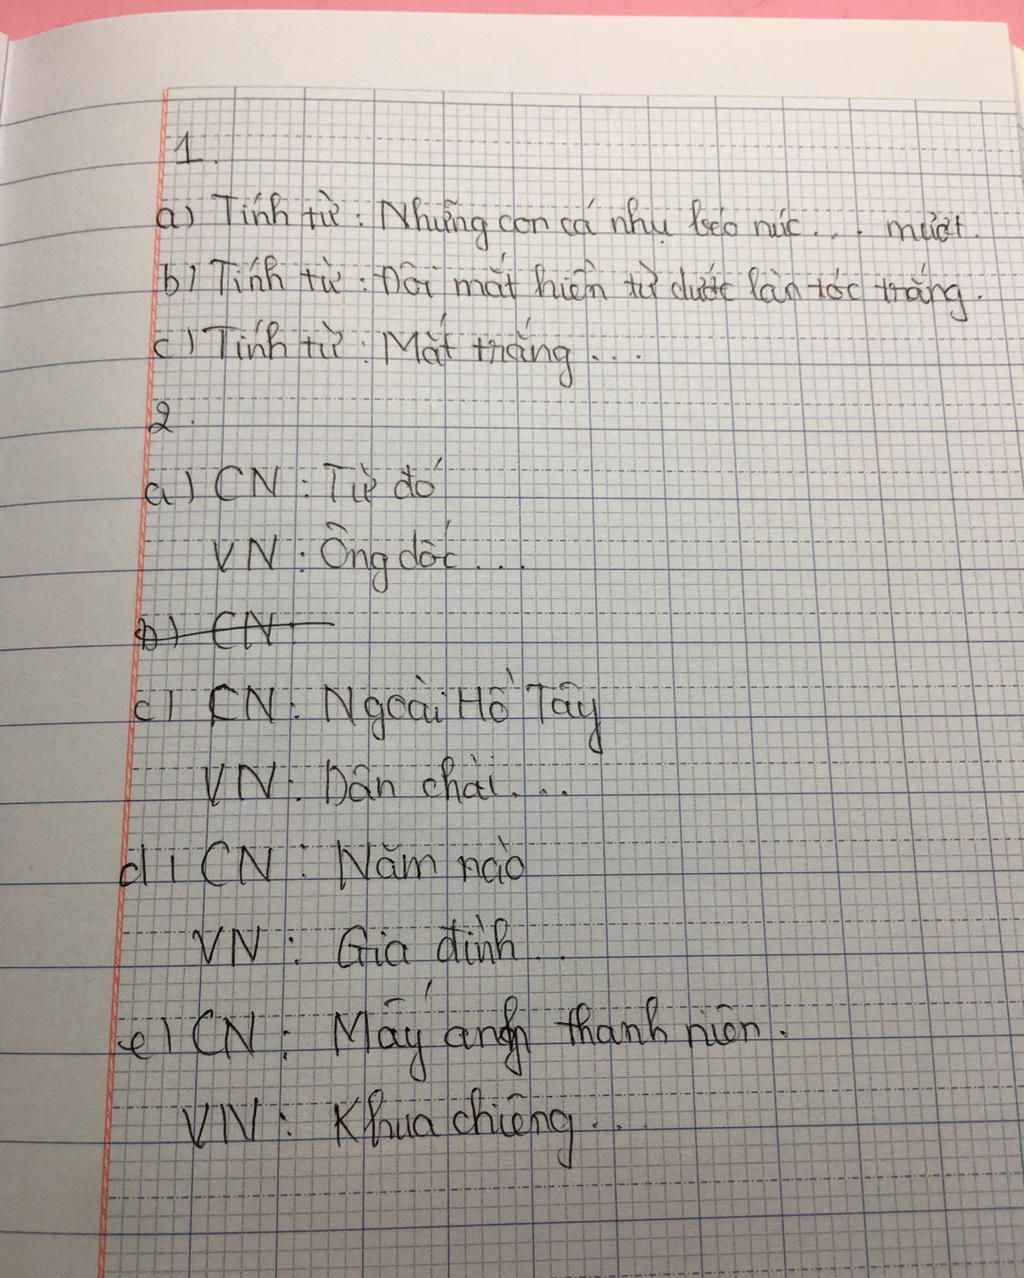 1.
a) Tính từ : Những con cá nhụ béo núc ... mướt.
b) Tính từ : Đôi mắt hiền từ dưới làn tóc trắng.
c) Tính từ : Mắt trắng ...
2.
a) CN : Từ đó
VN : Ông dốc ...
b) CN
c) CN : Ngoài Hồ Tây
VN : Dân chài ...
d) CN : Năm nào
VN : Gia đình ..
e) CN : Mấy anh thanh niên.
VN : Khua chiêng ...